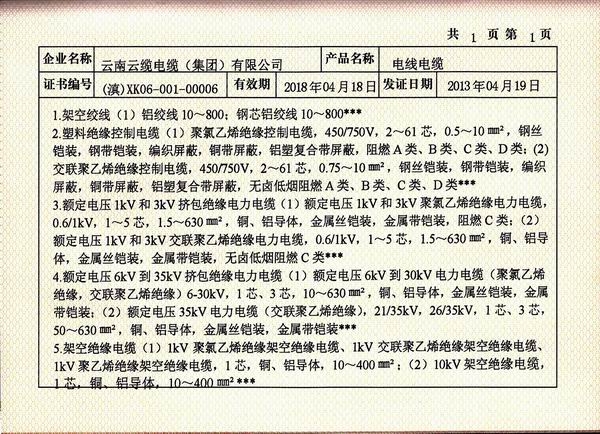 共 1 页 第 1 页
企业名称 云南云缆电缆（集团）有限公司 产品名称 电线电缆
证书编号 (滇)XK06-001-00006 有效期 2018年04月18日 发证日期 2013年04月19日
1.架空绞线（1）铝绞线10～800；钢芯铝绞线10～800***
2.塑料绝缘控制电缆（1）聚氯乙烯绝缘控制电缆，450/750V，2～61芯，0.5～10㎜²，钢丝
铠装，钢带铠装，编织屏蔽，铜带屏蔽，铝塑复合带屏蔽，阻燃A类、B类、C类、D类；（2）
交联聚乙烯绝缘控制电缆，450/750V，2～61芯，0.75～10㎜²，钢丝铠装，钢带铠装，编织
屏蔽，铜带屏蔽，铝塑复合带屏蔽，无卤低烟阻燃A类、B类、C类、D类***
3.额定电压1kV和3kV挤包绝缘电力电缆（1）额定电压1kV和3kV聚氯乙烯绝缘电力电缆，
0.6/1kV，1～5芯，1.5～630㎜²，铜、铝导体，金属丝铠装，金属带铠装，阻燃C类；（2）
额定电压1kV和3kV交联聚乙烯绝缘电力电缆，0.6/1kV，1～5芯，1.5～630㎜²，铜、铝导
体，金属丝铠装，金属带铠装，无卤低烟阻燃C类***
4.额定电压6kV到35kV挤包绝缘电力电缆（1）额定电压6kV到30kV电力电缆（聚氯乙烯
绝缘，交联聚乙烯绝缘）6-30kV，1芯、3芯，10～630㎜²，铜、铝导体，金属丝铠装，金属
带铠装；（2）额定电压35kV电力电缆（交联聚乙烯绝缘），21/35kV，26/35kV，1芯、3芯，
50～630㎜²，铜、铝导体，金属丝铠装，金属带铠装***
5.架空绝缘电缆（1）1kV聚氯乙烯绝缘架空绝缘电缆、1kV交联聚乙烯绝缘架空绝缘电缆、
1kV聚乙烯绝缘架空绝缘电缆，1芯，铜、铝导体，10～400㎜²；（2）10kV架空绝缘电缆，
1芯，铜、铝导体，10～400㎜²***